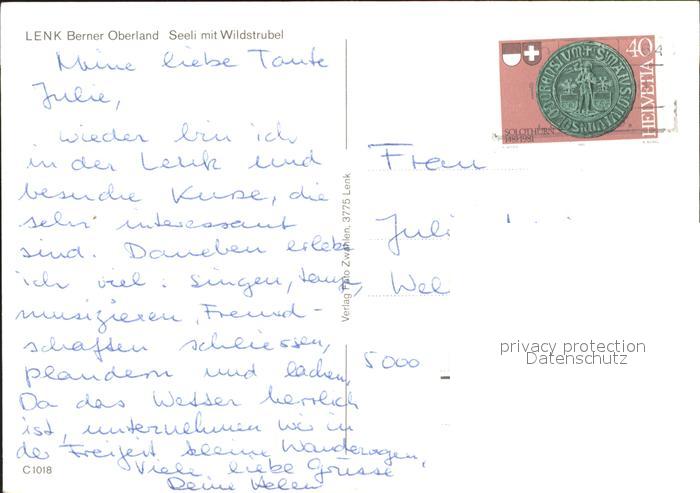 LENK Berner Oberland Seeli mit Wildstrubel
Meine liebe Tante
Julie,
wieder bin ich
in der Lenk und
besuche Kurse, die
sehr interessant
sind. Daneben erlebe
ich viel: singen, tanzen,
musizieren, Freund-
schaften schliessen,
plaudern und lachen.
Da das Wetter herrlich
ist, unternehmen wir in
der Freizeit kleine Wanderungen.
Viele liebe Grüsse
Deine Helen
C1018
Verlag Foto Zwahlen, 3775 Lenk
40
HELVETIA
SOLOTHURN
1481-1981
Frau
Juli
Wel
5000
privacy protection
Datenschutz